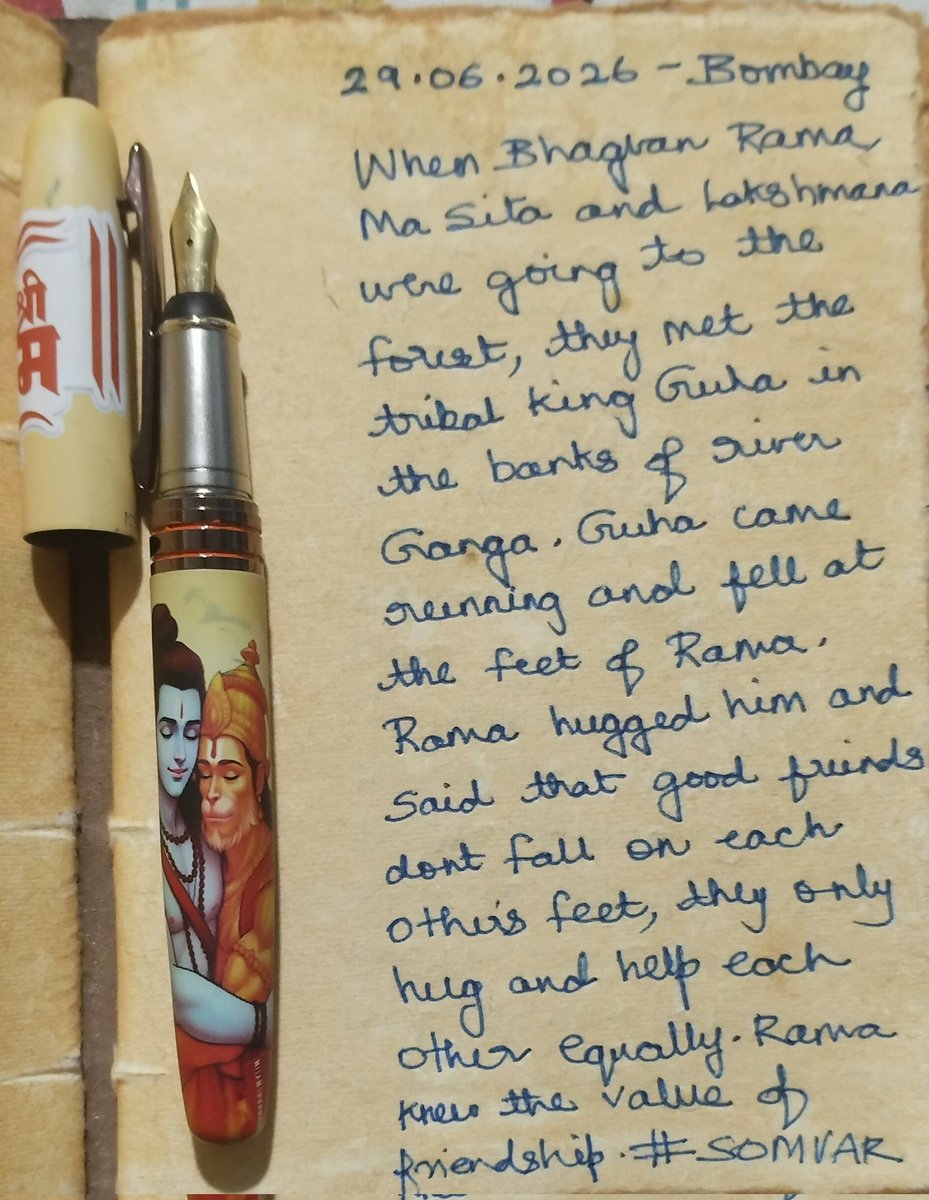 श्री
म
29.06.2026 - Bombay
When Bhagvan Rama
Ma Sita and Lakshmana
were going to the
forest, they met the
tribal king Guha in
the banks of river
Ganga. Guha came
running and fell at
the feet of Rama.
Rama hugged him and
said that good friends
dont fall on each
other's feet, they only
hug and help each
other equally. Rama
knew the value of
friendship. #SOMVAR